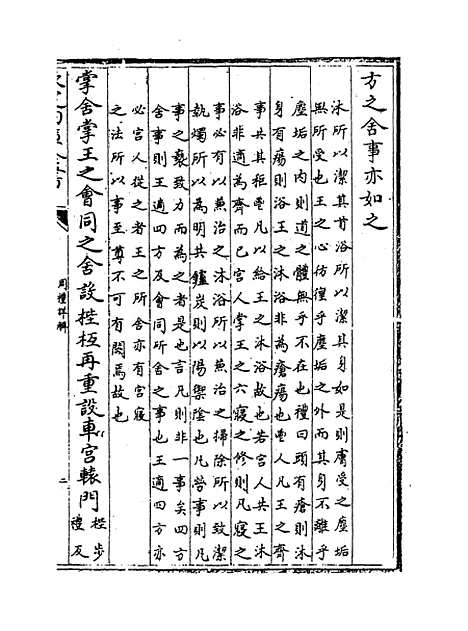 方之舍事亦如之
沐所以潔其首浴所以潔其身如是則膚受之塵垢
無所受也王之心彷徨乎塵垢之外而其身不離乎
塵垢之内則道之體無乎不在也禮曰頭有瘡則沐
身有瘍則浴王之沐浴非為瘡瘍也鬯人凡王之齊
事共其秬鬯凡以給王之沐浴故也若宫人共王沐
浴非適為齊而已宫人掌王之六寢之修則凡寢之
事必有以蕪治之沐浴所以蕪治之掃除所以致潔
執燭所以為明共鑪炭則以陽禦陰也凡勞事則凡
事之褻致力而為之者是也言凡則非一事矣四方
舍事則王適四方及會同所舍之事也王適四方亦
必宫人從之者王之所舍亦有宫寢
之法所以事至尊不可有闕焉故也
掌舍掌王之會同之舍設梐枑再重設車宫轅門 梐步
禮反
周禮詳解
二